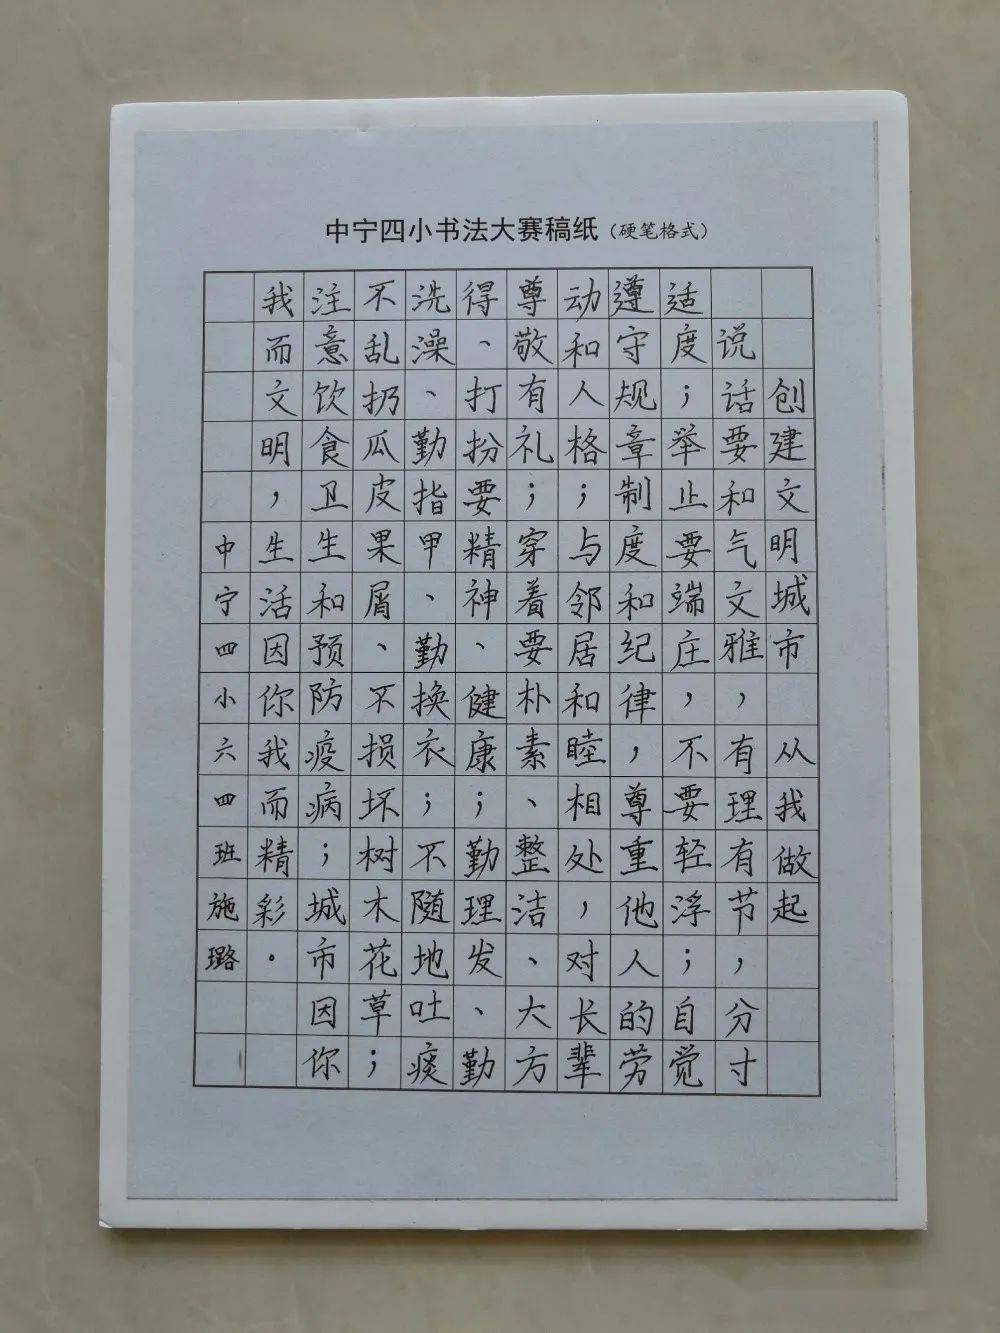 中宁四小书法大赛稿纸（硬笔格式）
创建文明城市 从我做起
说话要和气文雅，有理有节，分寸
适度；举止要端庄，不要轻浮；自觉
遵守规章制度和纪律，尊重他人的劳
动和人格；与邻居和睦相处，对长辈
尊敬有礼；穿着要朴素、整洁、大方
得、打扮要精神、健康；勤理发、勤
洗澡、勤指甲、勤换衣；不随地吐痰
不乱扔瓜皮果屑、不损坏树木花草；
注意饮食卫生和预防疫病；城市因你
我而文明，生活因你我而精彩。
中宁四小六四班施璐